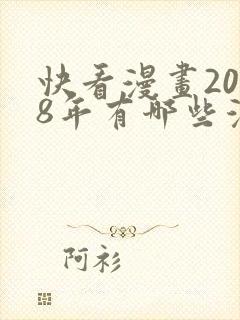 快看漫畫20
8年有哪些
阿衫